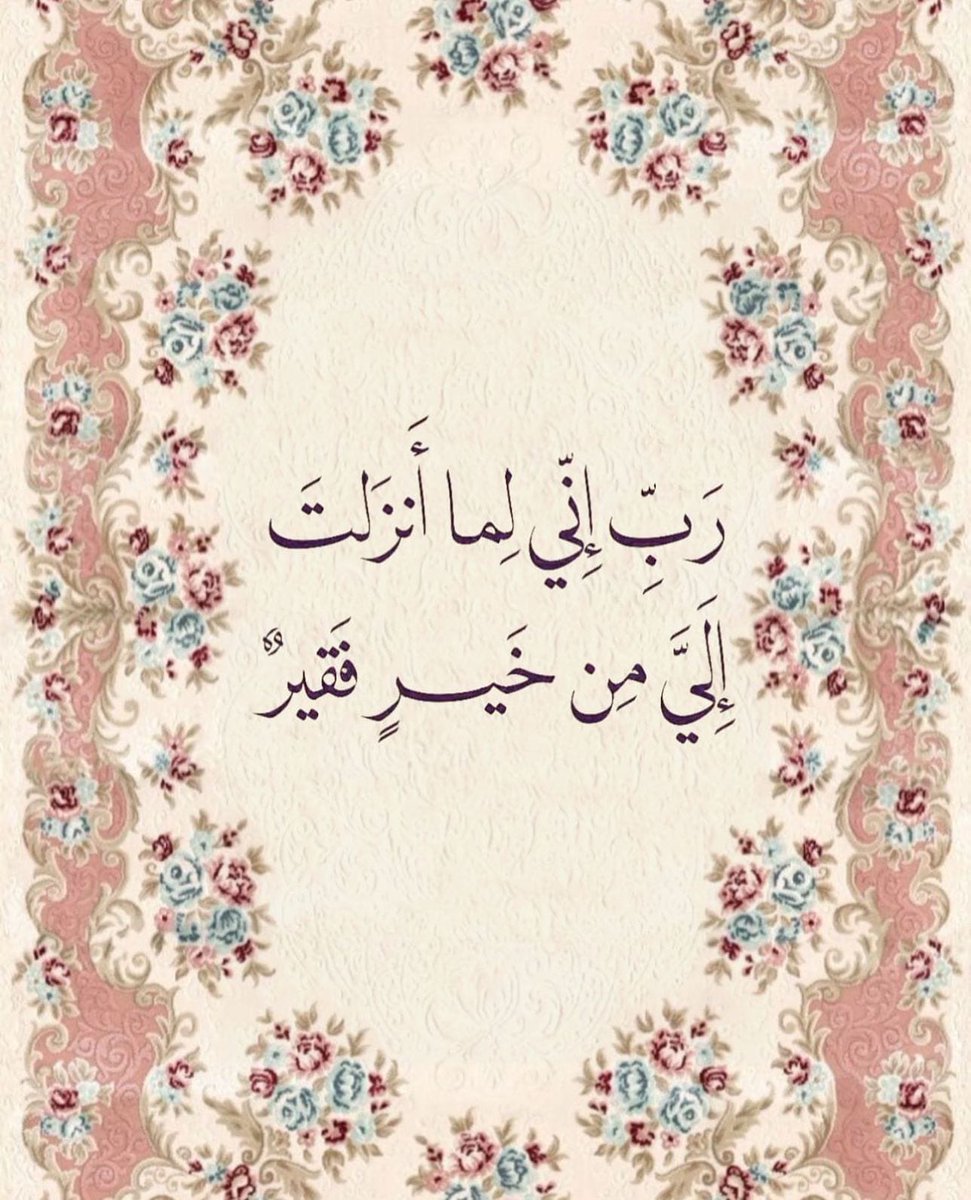 رَبِّ إِنّي لِما أَنزَلتَ
إِلَيَّ مِن خَيرٍ فَقيرٌ